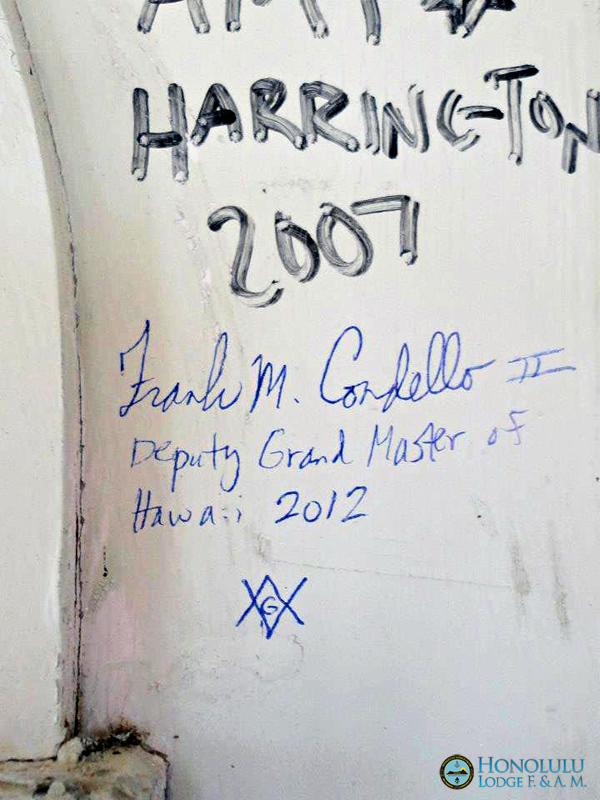 AMY &
HARRINGTON
2007
Frank M. Condello II
Deputy Grand Master of
Hawaii 2012
G
HONOLULU
LODGE F. & A. M.